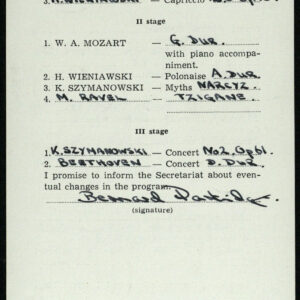 3. H. WIENIAWSKI — Capriccio
II stage
1. W. A. MOZART — G. DUR.
with piano accompa-
niment.
2. H. WIENIAWSKI — Polonaise A. DUR
3. K. SZYMANOWSKI — Myths NARCYZ.
4. M. RAVEL — TZIGANE.
III stage
1. K. SZYMANOWSKI — Concert No2, Op61.
2. BEETHOVEN — Concert D. DUR.
I promise to inform the Secretariat about even-
tual changes in the program.
Bernard
(signature)